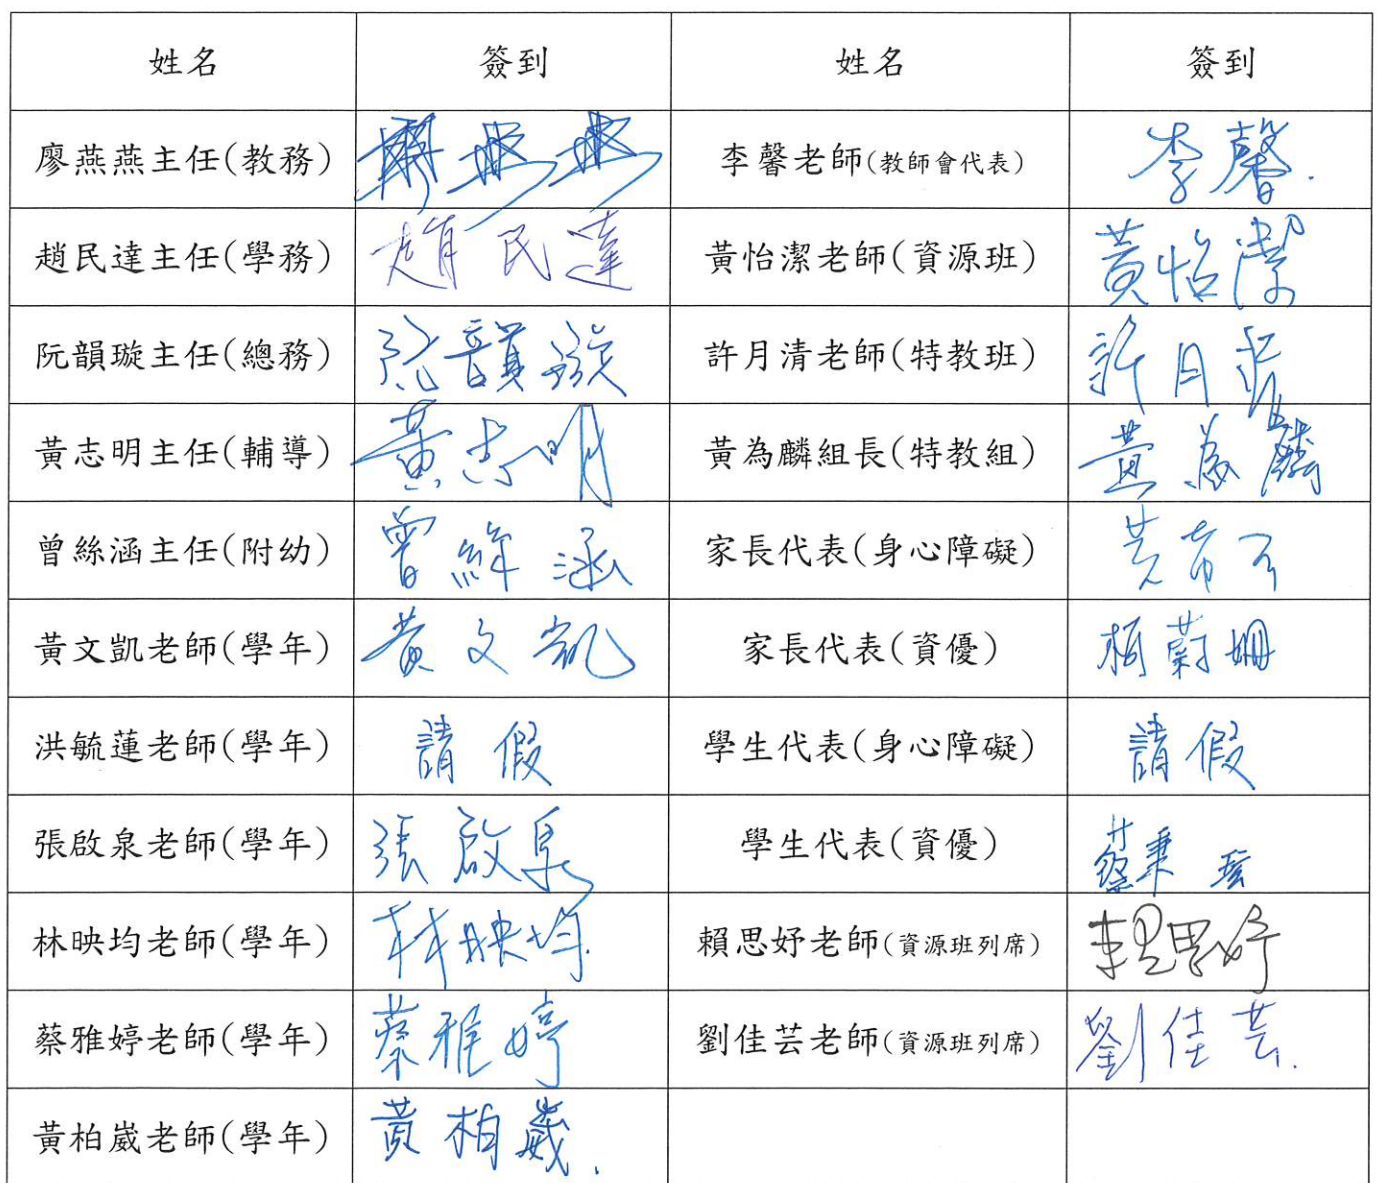 姓名 簽到 姓名 簽到
廖燕燕主任(教務) 廖燕燕 李馨老師(教師會代表) 李馨.
趙民達主任(學務) 趙民達 黃怡潔老師(資源班) 黃怡潔
阮韻璇主任(總務) 阮韻璇 許月清老師(特教班) 許月清
黃志明主任(輔導) 黃志明 黃為麟組長(特教組) 黃為麟
曾絲涵主任(附幼) 曾絲涵 家長代表(身心障礙)
黃文凱老師(學年) 黃文凱 家長代表(資優) 柯蔚姍
洪毓蓮老師(學年) 請假 學生代表(身心障礙) 請假
張啟泉老師(學年) 張啟泉 學生代表(資優) 蔡秉
林映均老師(學年) 林映均 賴思妤老師(資源班列席) 賴思妤
蔡雅婷老師(學年) 蔡雅婷 劉佳芸老師(資源班列席) 劉佳芸.
黃柏崴老師(學年) 黃柏崴.